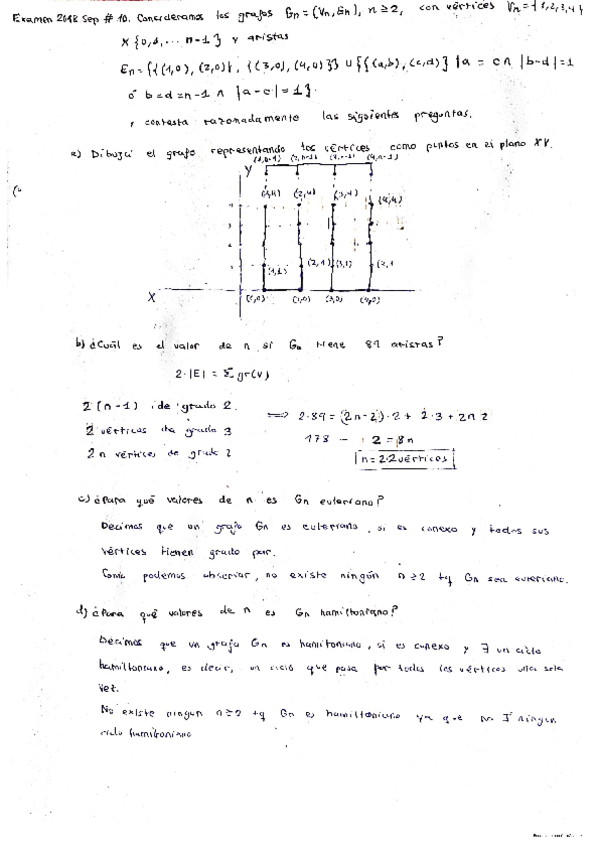 Examen 2018 Sep # 10. Consideramos los grafos Gn = (Vn, En), n ≥ 2, con vértices Vn = {1,2,3,4}
X {0,1,... n-1} y aristas
En = {{(1,0), (2,0)}, {(3,0), (4,0)}} ∪ {{(a,b), (c,d)} / a = c ∧ |b-d| = 1
ó b=d=n-1 ∧ |a-c| = 1}.
y contesta razonadamente las siguientes preguntas.
a) Dibuja el grafo representando los vértices como puntos en el plano XY.
(2,n-1) (4,n-1)
Y
(2,4) (3,4) (4,4)
(1,1) (2,1) (3,1)
X (1,0) (3,0)
b) ¿Cuál es el valor de n si Gn tiene 89 aristas?
2·|E| = Σ gr(v)
2(n-1) de grado 2.
2 vértices de grado 3
2n vértices de grado 2
⟹ 2·89 = (2n-2)·2 + 2·3 + 2n·2
178 - 2 = 8n
n = 22 vértices
c) ¿Para qué valores de n es Gn euleriano?
Decimos que un grafo Gn es euleriano, si es conexo y todos sus
vértices tienen grado par.
Como podemos observar, no existe ningún n ≥ 2 tq Gn sea euleriano.
d) ¿Para qué valores de n es Gn hamiltoniano?
Decimos que un grafo Gn es hamiltoniano, si es conexo y ∃ un ciclo
hamiltoniano, es decir, un ciclo que pasa por todos los vértices una sola
vez.
No existe ningun n ≥ 2 tq Gn es hamiltoniano ya que no ∃ ningun
ciclo hamiltoniano